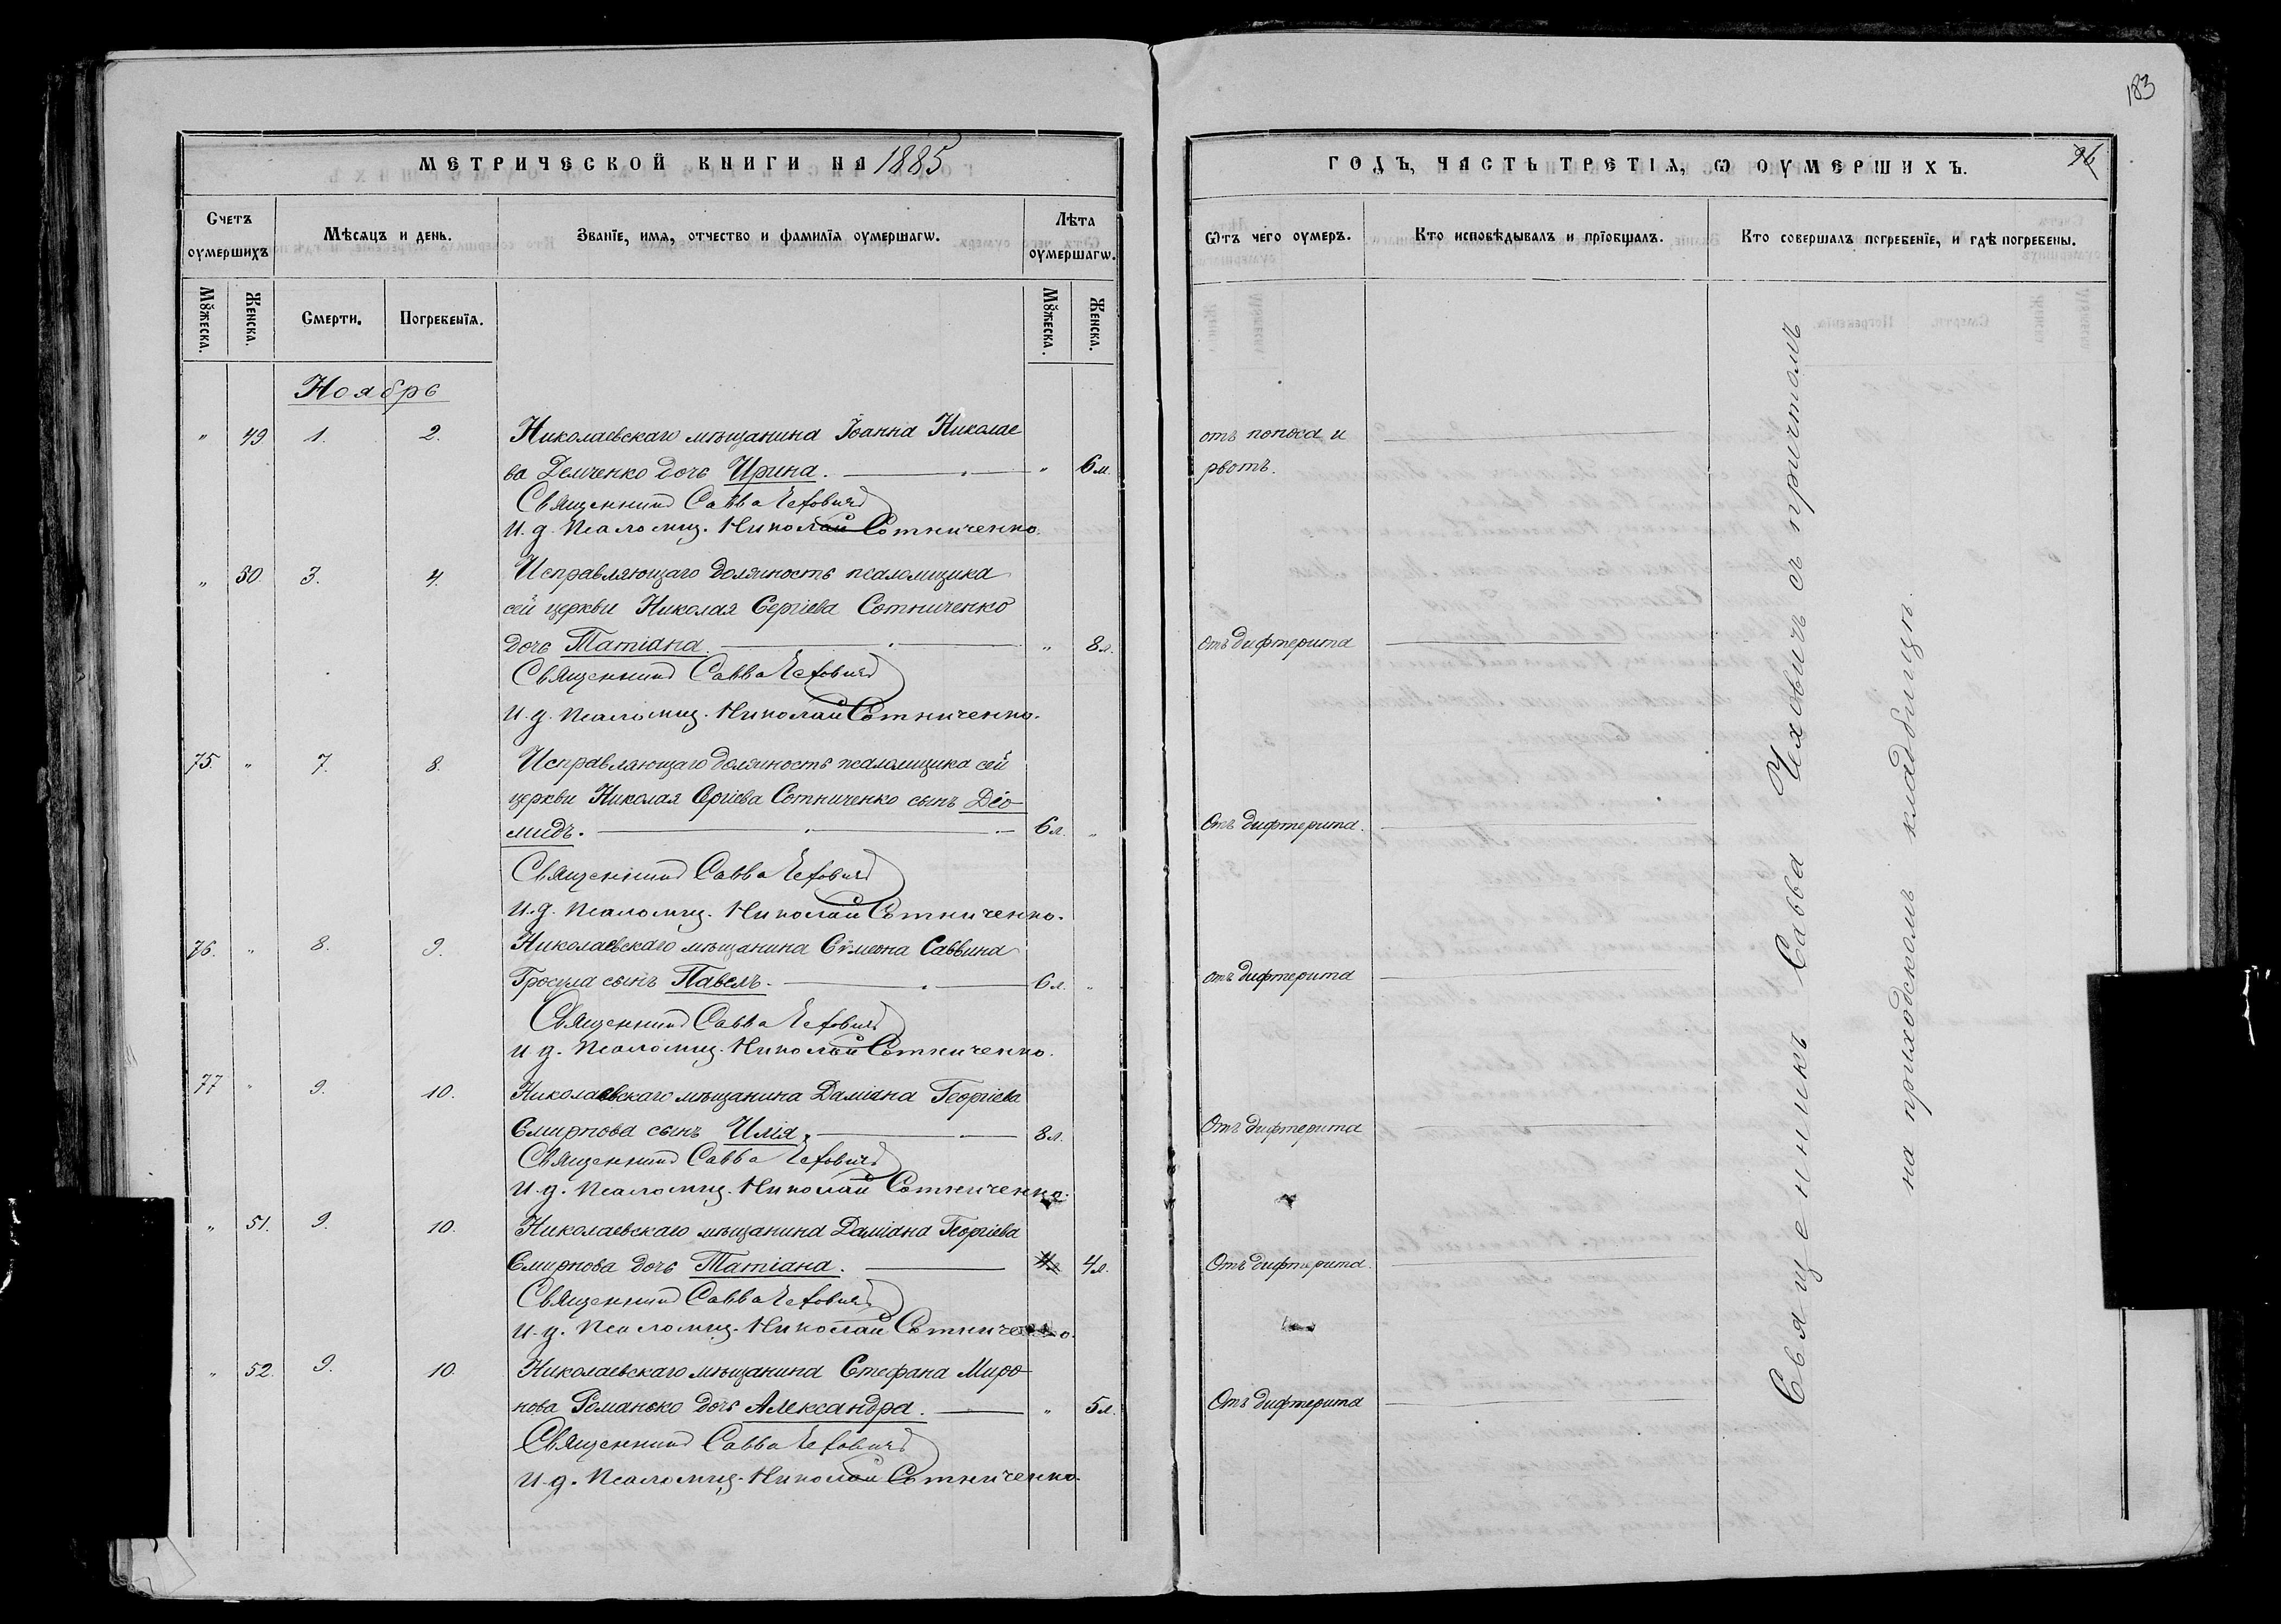 183
МЕТРИЧЕСКОЙ КНИГИ НА 1885
ГОДЪ, ЧАСТЬ ТРЕТІЯ, Ѡ ОУМЕРШИХЪ.
96
Счетъ оумершихъ
Мѣсяцъ и день.
Званїе, имя, отчество и фамилїя оумершагѡ.
Лѣта оумершагѡ.
Ѿтъ чего оумеръ.
Кто исповѣдывалъ и прїобщалъ.
Кто совершалъ погребенїе, и гдѣ погребены.
Мꙋжеска.
Женска.
Смерти.
Погребенїя.
Мꙋжеска.
Женска.
Ноябрь
" 49 1. 2. Николаевскаго мѣщанина Іоанна Николае
ва Демченко дочь Ирина. " 6 м. отъ поноса и
рвотъ.
Священникъ Савва Чеховичъ
И. д. Псаломщ. Николай Сотниченко.
" 50 3. 4. Исправляющаго должность псаломщика
сей церкви Николая Сергіева Сотниченко
дочь Татіана. " 8 л. Отъ дифтерита
Священникъ Савва Чеховичъ
И. д. Псаломщ. Николай Сотниченко.
75. " 7. 8. Исправляющаго должность псаломщика сей
церкви Николая Сергіева Сотниченко сынъ Діо-
мидъ. 6 л. " Отъ дифтерита.
Священникъ Савва Чеховичъ
И. д. Псаломщ. Николай Сотниченко.
76. " 8. 9. Николаевскаго мѣщанина Сѵмеона Саввина
Гросула сынъ Павелъ. 6 л. " отъ дифтерита
Священникъ Савва Чеховичъ
И. д. Псаломщ. Николай Сотниченко.
77 " 9. 10. Николаевскаго мѣщанина Даміана Георгіева
Смирнова сынъ Илія. 8 л. Отъ дифтерита
Священникъ Савва Чеховичъ
И. д. Псаломщ. Николай Сотниченко.
" 51. 9. 10. Николаевскаго мѣщанина Даміана Георгіева
Смирнова дочь Татіана. 4 л. 4 л. Отъ дифтерита.
Священникъ Савва Чеховичъ
И. д. Псаломщ. Николай Сотниченко.
" 52. 9. 10. Николаевскаго мѣщанина Стефана Миро-
нова Романько дочь Александра. " 5 л. Отъ дифтерита
Священникъ Савва Чеховичъ
И. д. Псаломщ. Николай Сотниченко.
Священникъ Савва Чеховичъ съ причтомъ
на приходскомъ кладбищѣ.